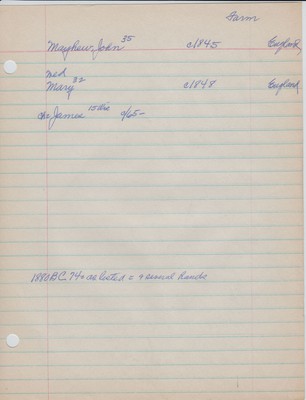 Farm
Mayhew John 35 c1845 England
med
Mary 32 c1848 England
ch: James 15 c/65-
1880 BC 74 + as listed = + several hands